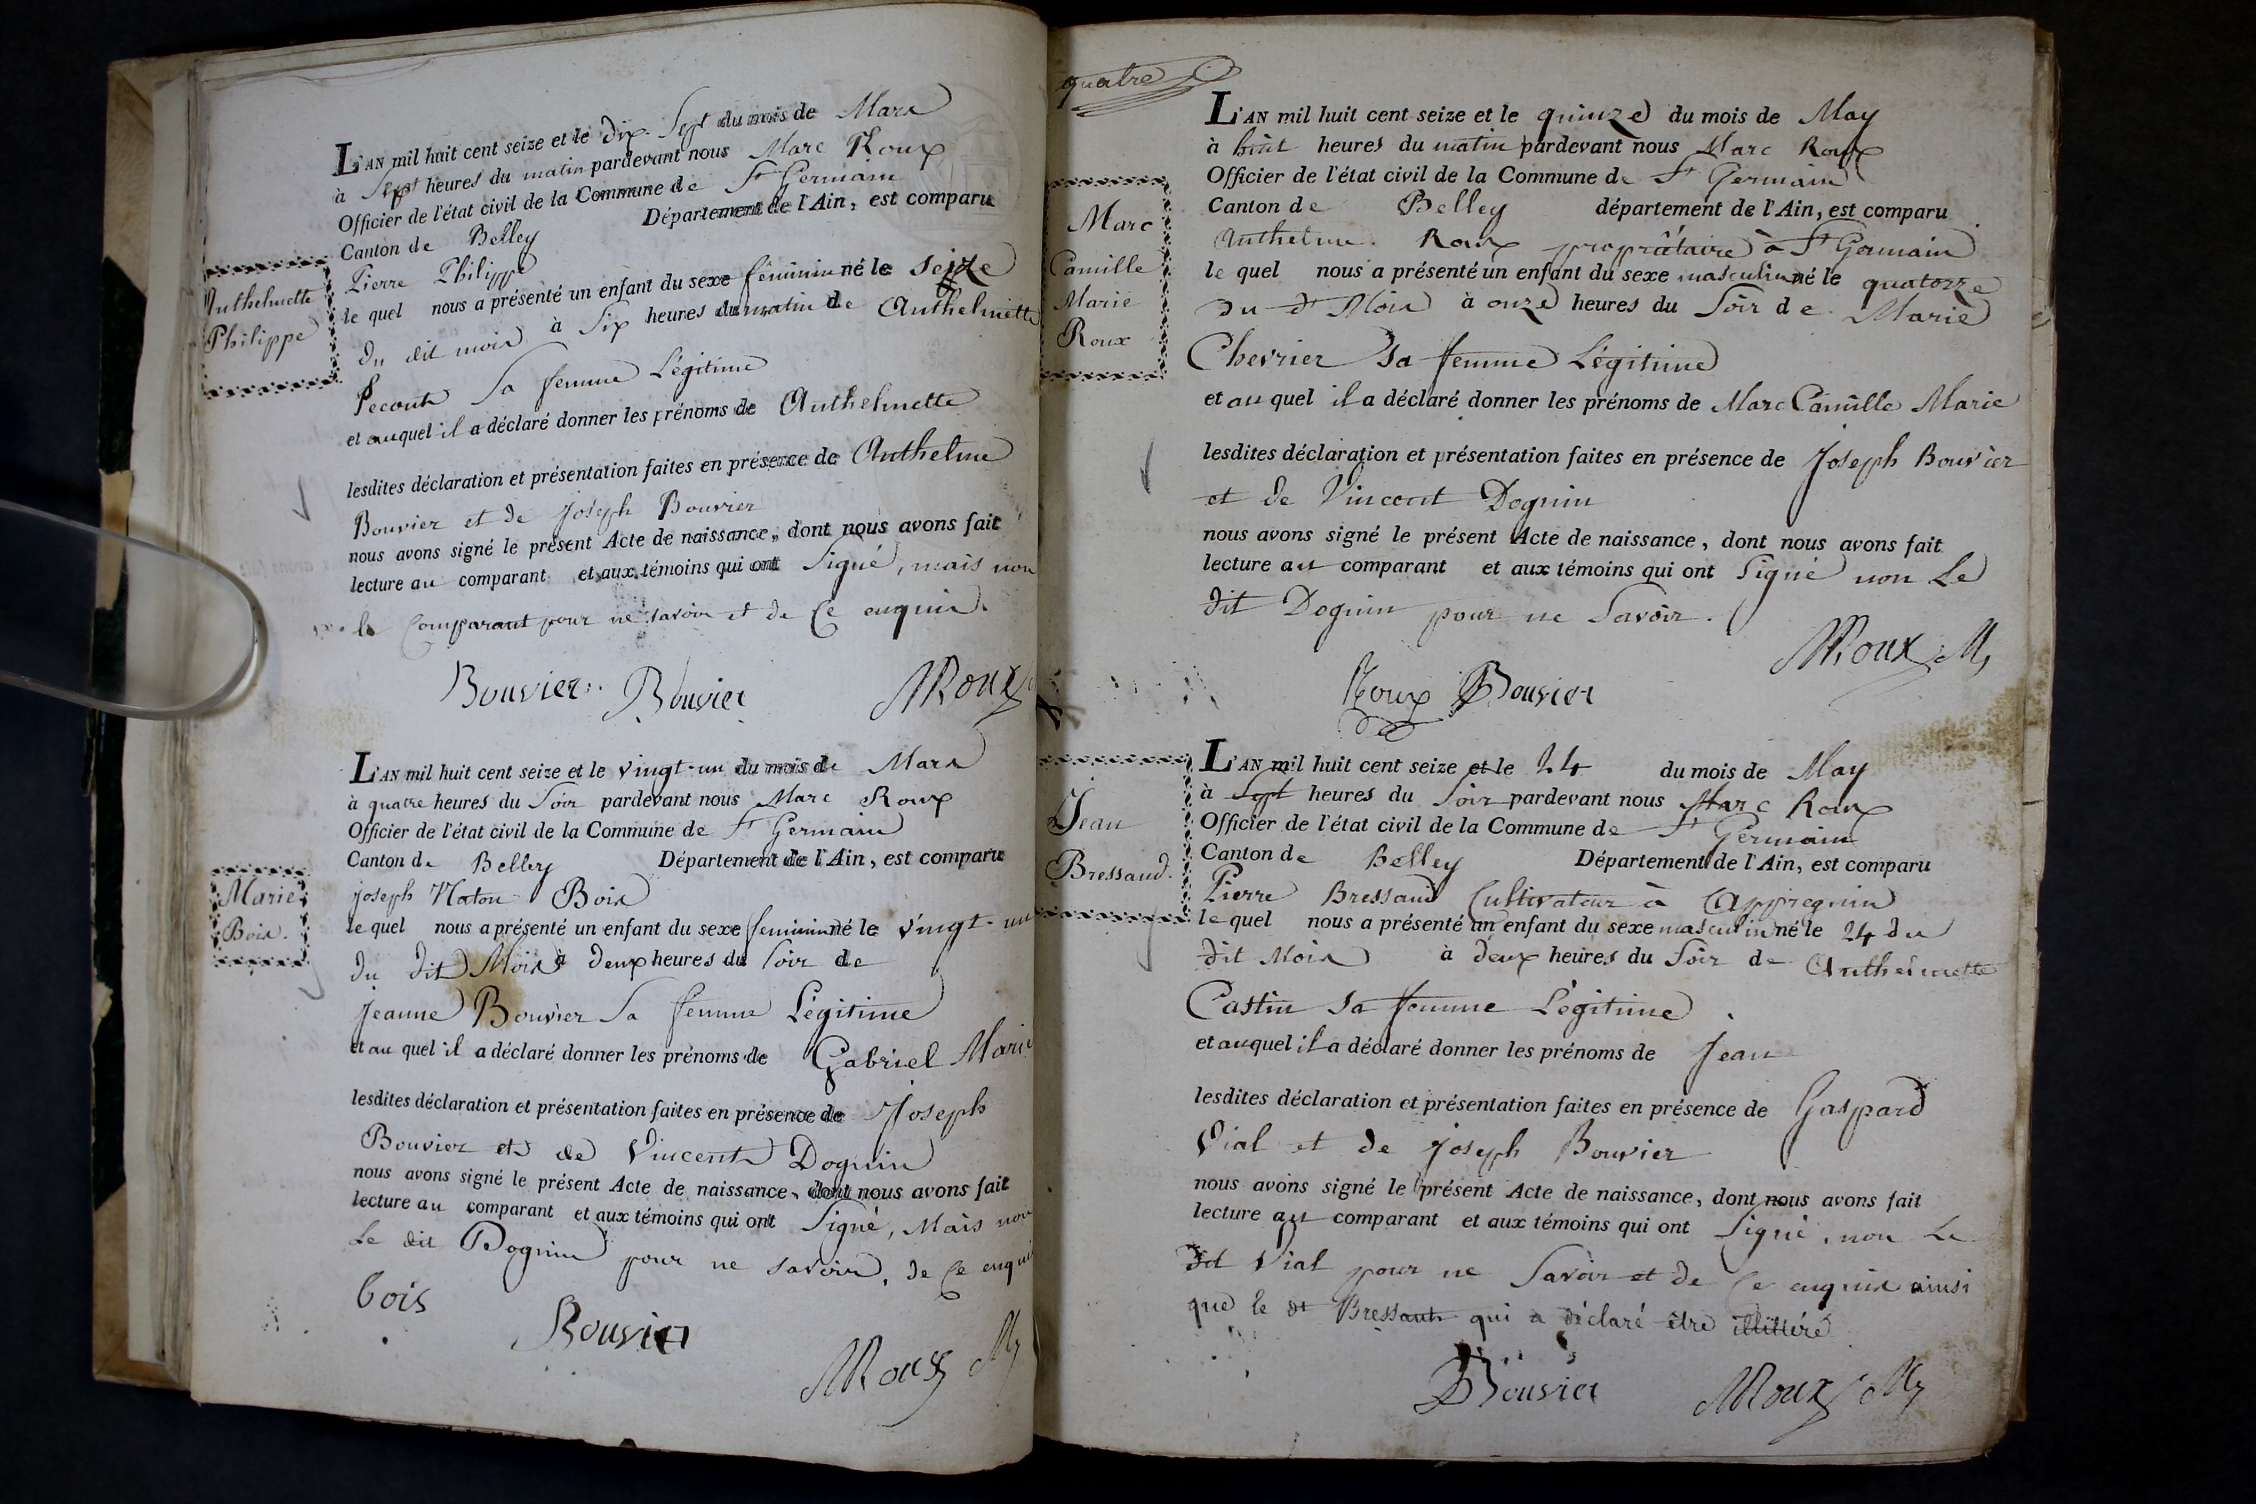 Anthelmette
Philippe
L'AN mil huit cent seize et le dix-Sept du mois de Mars
à Sept heures du matin pardevant nous Marc Roux
Officier de l'état civil de la Commune de St Germain
Canton de Belley Département de l'Ain, est comparu
Pierre Philippe
le quel nous a présenté un enfant du sexe féminin né le seize
du dit mois à Six heures du matin de Anthelmette
Pecout Sa femme Légitime
et auquel il a déclaré donner les prénoms de Anthelmette
lesdites déclaration et présentation faites en présence de Anthelme
Bouvier et de Joseph Bouvier
nous avons signé le présent Acte de naissance, dont nous avons fait
lecture au comparant et aux témoins qui ont Signé, mais non
le Comparant pour ne savoir et de Ce enquis.
Bouvier Bouvier MRoux
Marie
Bois.
L'AN mil huit cent seize et le vingt-un du mois de Mars
à quatre heures du Soir pardevant nous Marc Roux
Officier de l'état civil de la Commune de St Germain
Canton de Belley Département de l'Ain, est comparu
joseph Bois
le quel nous a présenté un enfant du sexe feminin né le vingt-un
du dit Mois à deux heures du Soir de
jeanne Bouvier Sa femme Légitime
et au quel il a déclaré donner les prénoms de Gabriel Marie
lesdites déclaration et présentation faites en présence de Joseph
Bouvier et de Vincent Dognin
nous avons signé le présent Acte de naissance, dont nous avons fait
lecture au comparant et aux témoins qui ont Signé, Mais non
Le dit Dognin pour ne savoir, de Ce enquis
bois Bouvier MRoux
quatre
Marc
Camille
Marie
Roux
L'AN mil huit cent seize et le quinze du mois de May
à huit heures du matin pardevant nous Marc Roux
Officier de l'état civil de la Commune de St Germain
Canton de Belley département de l'Ain, est comparu
Anthelme Roux propriétaire à St Germain
le quel nous a présenté un enfant du sexe masculin né le quatorze
du dt Mois à onze heures du Soir de Marie
Chevrier Sa femme Légitime
et au quel il a déclaré donner les prénoms de Marc Camille Marie
lesdites déclaration et présentation faites en présence de Joseph Bouvier
et de Vincent Dognin
nous avons signé le présent Acte de naissance, dont nous avons fait
lecture au comparant et aux témoins qui ont Signé non Le
dit Dognin pour ne Savoir.
Roux Bouvier MRoux
Jean
Bressaud.
L'AN mil huit cent seize et le 24 du mois de May
à Sept heures du Soir pardevant nous Marc Roux
Officier de l'état civil de la Commune de St Germain
Canton de Belley Département de l'Ain, est comparu
Pierre Bressaud Cultivateur à Appregnin
le quel nous a présenté un enfant du sexe masculin né le 24 du
dit Mois à deux heures du Soir de Anthelmette
Castin Sa femme Légitime
et auquel il a déclaré donner les prénoms de Jean
lesdites déclaration et présentation faites en présence de Gaspard
Vial et de joseph Bouvier
nous avons signé le présent Acte de naissance, dont nous avons fait
lecture au comparant et aux témoins qui ont Signé, non Le
dit Vial pour ne Savoir et de Ce enquis ainsi
que le dt Bressaut qui a déclaré être illitéré
Bouvier MRoux